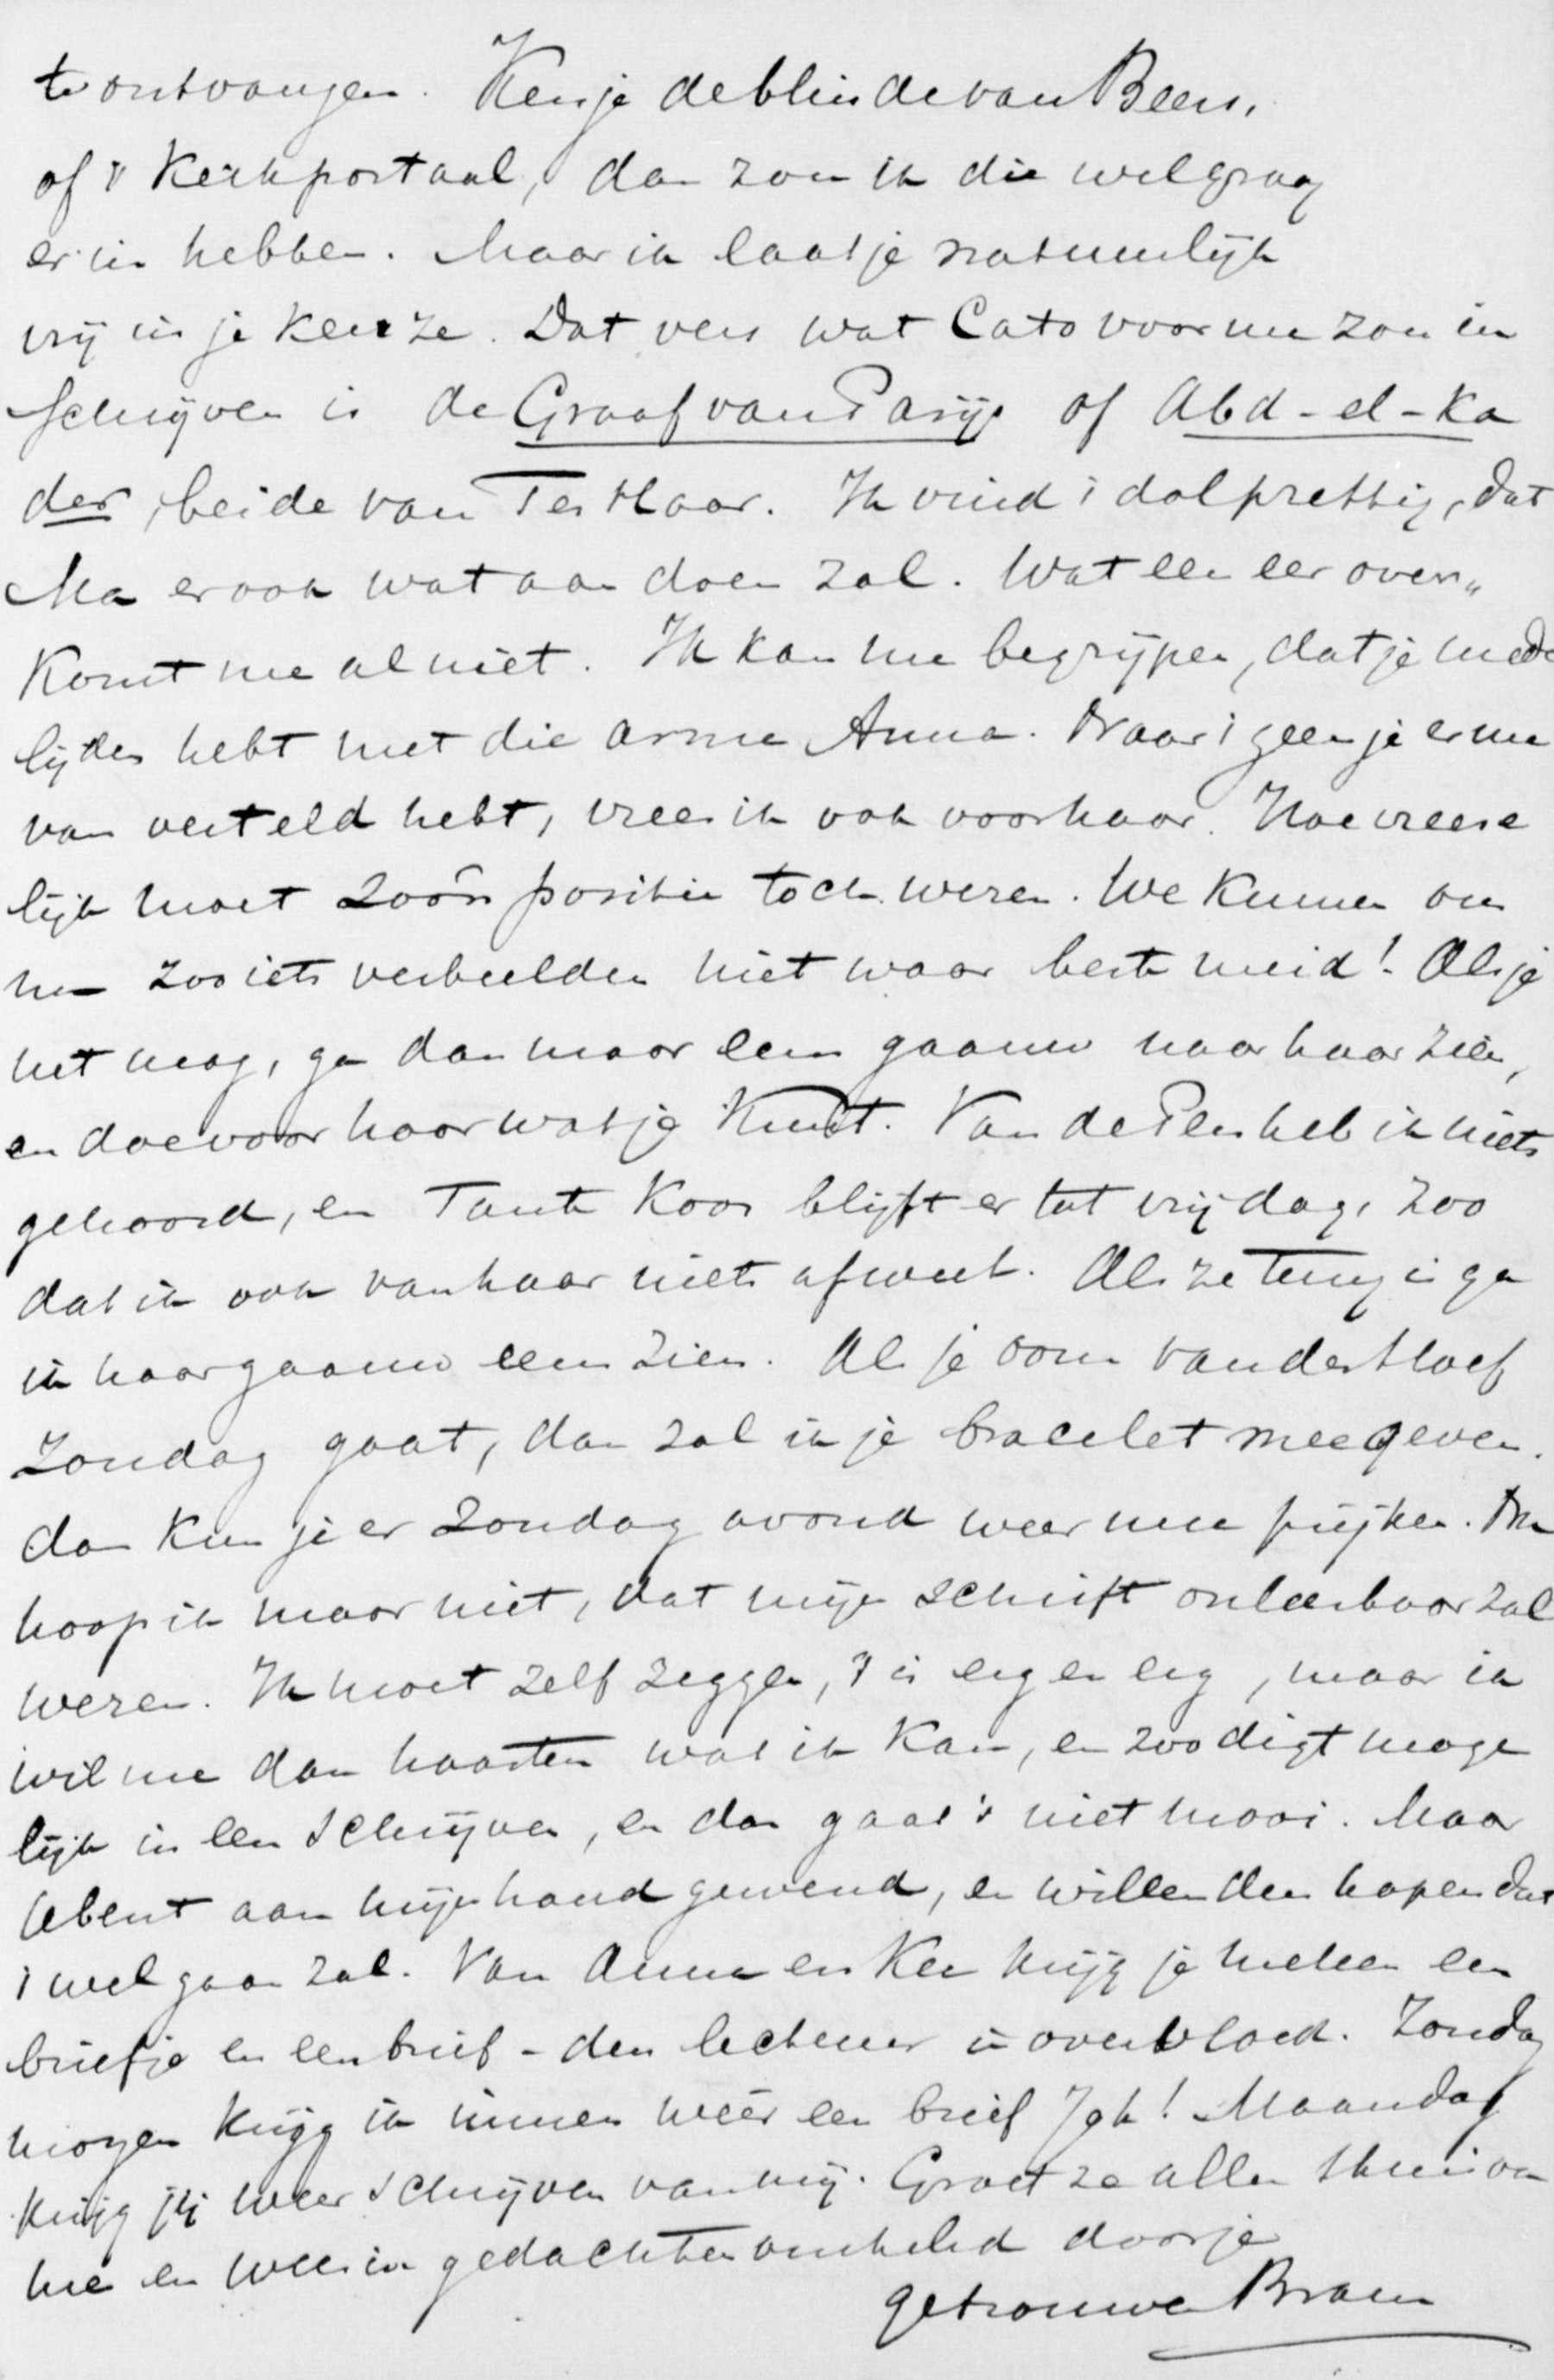 te ontvangen. Ken je de blinde van Beers,
of 't Kerkportaal, dan zou ik die wel graag
er in hebben. Maar ik laat je natuurlijk
vrij in je keuze. Dat vers wat Cato voor me zou in
schrijven is de Graaf van Parijs of Abd-el-Ka
der, beide van Ter Haar. Ik vind 't dolprettig, dat
Ma er ook wat aan doen zal. Wat een eer over„
komt me al niet. Ik kan me begrijpen, dat je mede
lijden hebt met die arme Anna. Naar 't geen je er me
van verteld hebt, vrees ik ook voor haar. Hoe vreese
lijk moet zoo'n positie toch wezen. We kunnen ons
zoo iets verbeelden niet waar beste meid! Als je
het mag, ga dan maar eens gaauw naar haar zien,
en doe voor haar wat je kunt. Van de Pen heb ik niets
gehoord, en Tante Koos blijft er tot vrijdag, zoo
dat ik ook van haar niets af weet. Als ze terug is ga
ik haar gaauw eens zien. Als je oom van der Hoef
Zondag gaat, dan zal ik je bracelet meegeven.
dan kun je er Zondag avond weer mee prijken. Nu
hoop ik maar niet, dat mijn schrift onleesbaar zal
wezen. Ik moet zelf zeggen, 't is erg en erg, maar ik
wil me dan haasten wat ik kan, en zoo digt moge
lijk in een schrijven, en dan gaat 't niet mooi. Maar
U bent aan mijn hand gewend, en willen dus hopen dat
't wel gaan zal. Van Anna en Kee krijg je meteen een
briefje en een brief - dus lectuur in overvloed. Zondag
morgen krijg ik immers weêr een brief Joh! Maandag
krijg jij weer schrijven van mij. Groet ze allen thuis van
me en wees in gedachten omhelsd door je
getrouwen Bram